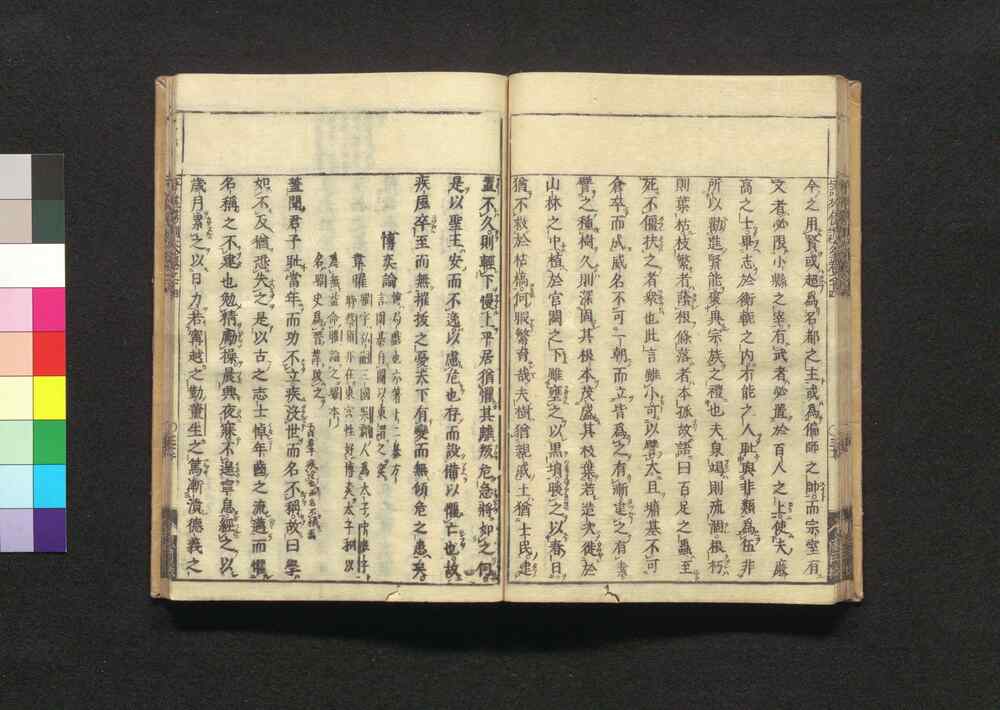 今之用賢或超爲名都之主或爲偏師之帥而宗室有
文者必限小縣之宰有武者必置於百人之上使夫廉
高之士畢志於衡軛之内不能之人耻與非類爲伍非
所以勸進賢能褒異宗族之禮也夫泉竭則流涸根朽
則葉枯枝繁者蔭根條落者本孤故語曰百足之蟲至
死不僵扶之者衆也此言雖小可以譬大且墉基不可
倉卒而成威名不可一朝而立皆爲之有漸建之有素
譬之種樹久則深固其根本茂盛其枝葉若造次徙於
山林之中植於宮闕之下雖壅之以黒墳暖之以春日
猶不救於枯槁何暇繁育哉夫樹猶親戚土猶士民建
置不久則輕下慢上平居猶懼其離叛危急將如之何
是以聖王安而不逸以慮危也存而設備以懼亡也故
疾風卒至而無摧拔之憂天下有變而無傾危之患矣
博奕論
韋曜
蓋聞君子耻當年而功不立疾没世而名不稱故曰學
如不及猶恐失之是以古之志士悼年齒之流邁而懼
名稱之不建也勉精勵操晨興夜寐不遑寧息經之以
歳月累之以日力若甯越之勤董生之篤漸漬德義之